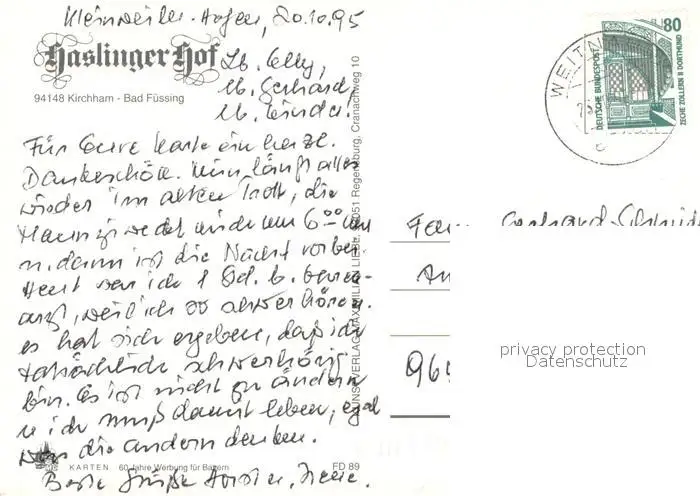 Kleinweiler-Hofen, 20.10.95
Haslinger Hof
94148 Kirchham - Bad Füssing
Lb. Elly,
lb. Gerhard,
lb. Kinder!
Für Eure Karte ein herzl.
Dankeschön. Nun läuft alles
wieder im alten Trott, die
weckt mich um 6.00 Uhr
u. dann ist die Nacht vorbei.
Heut war ich 1 Std. b.
arzt, weil ich so schwer höre.
es hat sich ergeben, daß ich
tatsächlich schwerhörig
bin. Es ist nicht zu ändern
u. ich muß damit leben, egal
was die andern denken.
Beste Grüße
KARTEN 60 Jahre Werbung für Bayern
FD 89
KUNSTVERLAG MAXIMILIAN LIEBL, 93051 Regensburg, Cranachweg 10
80
DEUTSCHE BUNDESPOST
ZECHE ZOLLERN II DORTMUND
WEITN
Fam. Gerhard
965
privacy protection
Datenschutz